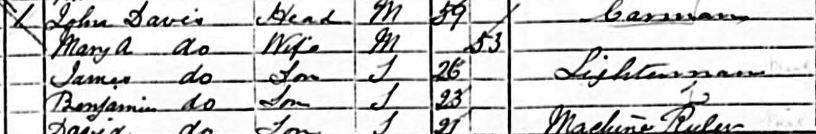 1 John Davis Head M 59 Carman
Mary A do Wife M 53
James do Son S 26 Lighterman
Benjamin do Son S 23
David do Son S 21 Machine Ruler